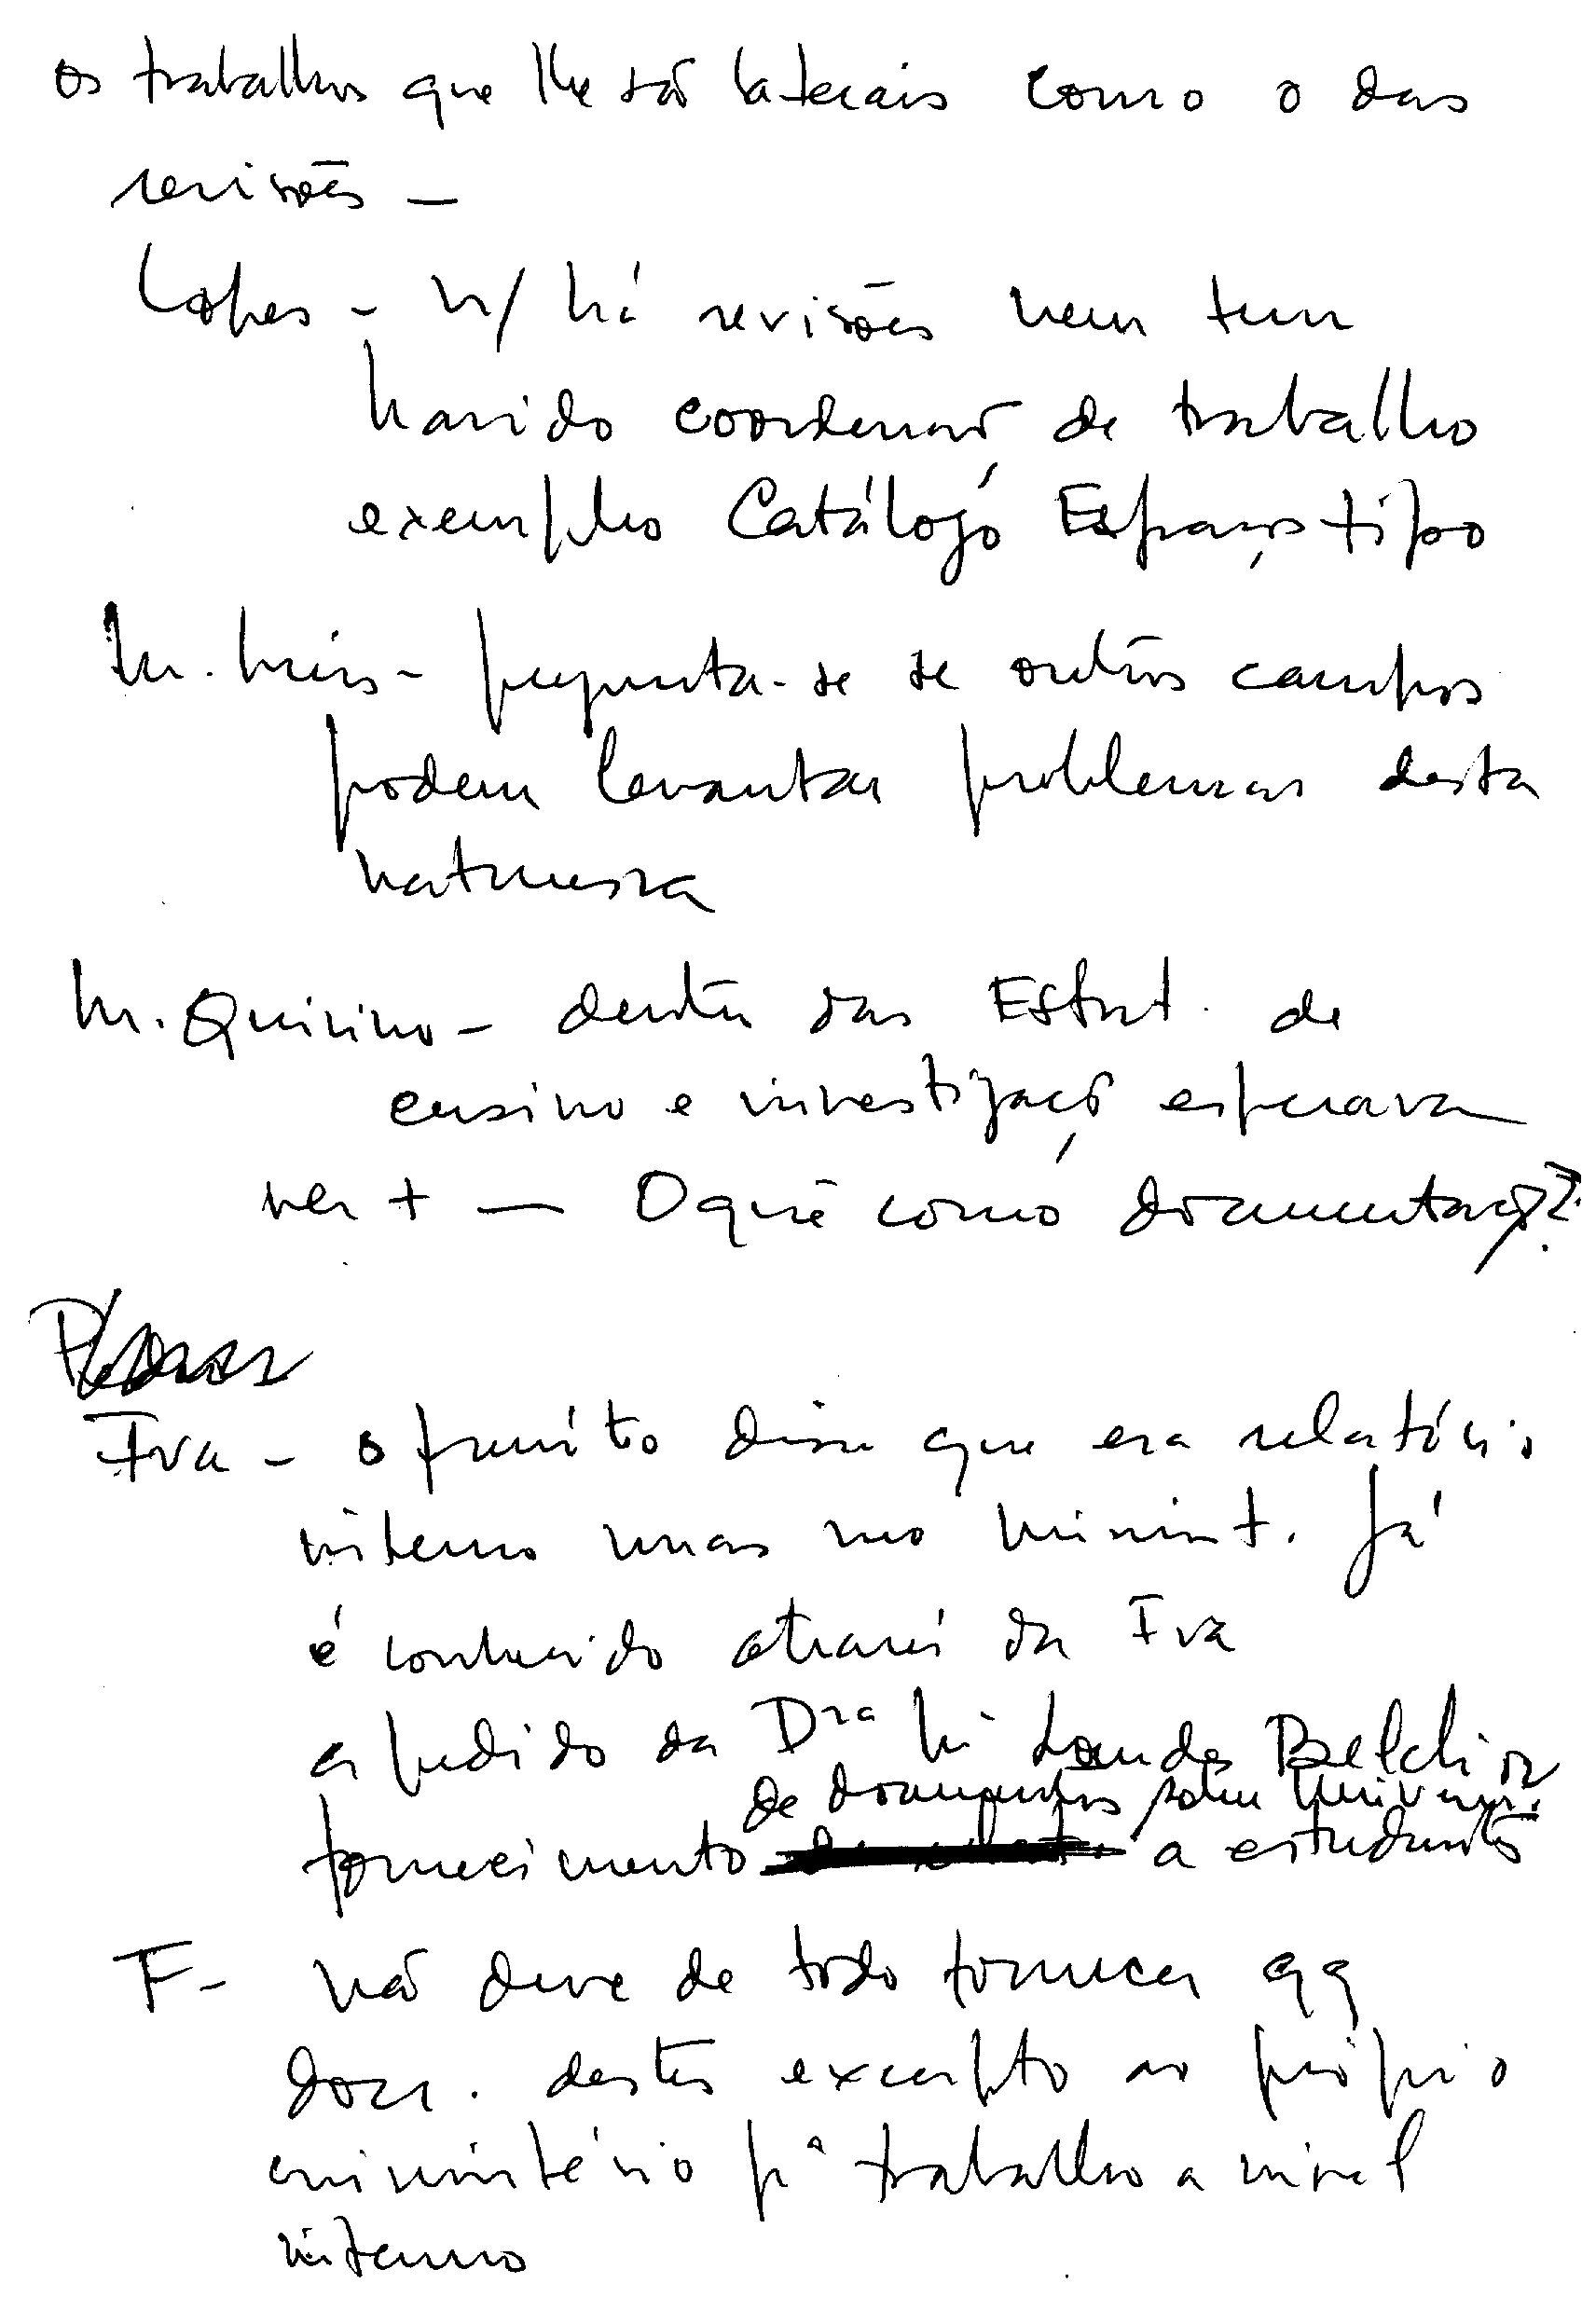 os trabalhos que lhe são laterais como o das
revisões —
Lopes - n/ há revisões nem tem
havido coordenação de trabalho
exemplo Catálogo Espaços tipo
M. Inês - pergunta-se se outros campos
podem levantar problemas desta
natureza
M. Quirino - dentro das Estrut. de
ensino e investigação esperava
ver + — O quê como documentação?
Iva - disse que era relatório
interno mas no Minist. já
é conhecido através da Iva
a pedido da Drª Lourdes Belchior
de documentos sobre Univers.
fornecimento a estudantes
F - não deve de todo fornecer qq
doc. destes excepto ao próprio
ministério pª trabalho a nível
interno